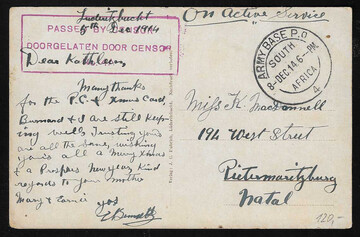 Luderitzbucht
5th Dec 1914
PASSED BY CENSOR
DOORGELATEN DOOR CENSOR
Dear Kathleen
Many thanks
for the P.C. & Xmas Card,
Burnard & I are still keep
ing well. Trusting you
are all the same, wishing
you all a Many Xmas
& a Prosperous New year, kind
regards to your mother
Mary &
yos
On Active Service
ARMY BASE P.O.
SOUTH AFRICA
8-DEC.14.6-PM
4
Miss K. MacDonnell
194 West Street
Pietermaritzburg
Natal
120,-